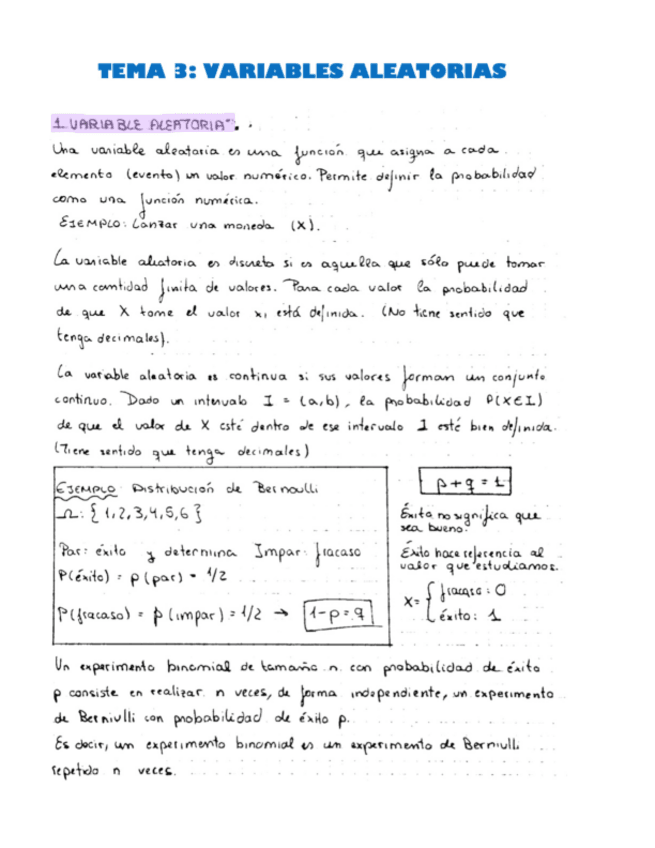 TEMA 3: VARIABLES ALEATORIAS
1. VARIABLE ALEATORIA".
Una variable aleatoria es una función que asigna a cada
elemento (evento) un valor numérico. Permite definir la probabilidad
como una función numérica.
EJEMPLO: Lanzar una moneda (X).
La variable aleatoria es discreta si es aquella que sólo puede tomar
una cantidad finita de valores. Para cada valor la probabilidad
de que X tome el valor x, está definida. (No tiene sentido que
tenga decimales).
La variable aleatoria es continua si sus valores forman un conjunto
continuo. Dado un intervalo I = (a,b), la probabilidad P(X∈I)
de que el valor de X esté dentro de ese intervalo I esté bien definida.
(Tiene sentido que tenga decimales)
EJEMPLO Distribución de Bernoulli
Ω: {1,2,3,4,5,6}
Par: éxito y determina Impar: fracaso
P(éxito) = p(par) = 1/2
P(fracaso) = p(impar) = 1/2 → 1-p=q
p+q=1
Éxito no significa que
sea bueno.
Éxito hace referencia al
valor que estudiamos.
X= { fracaso: 0
éxito: 1
Un experimento binomial de tamaño n con probabilidad de éxito
p consiste en realizar n veces, de forma independiente, un experimento
de Berniulli con probabilidad de éxito p.
Es decir, un experimento binomial es un experimento de Berniulli
repetido n veces.